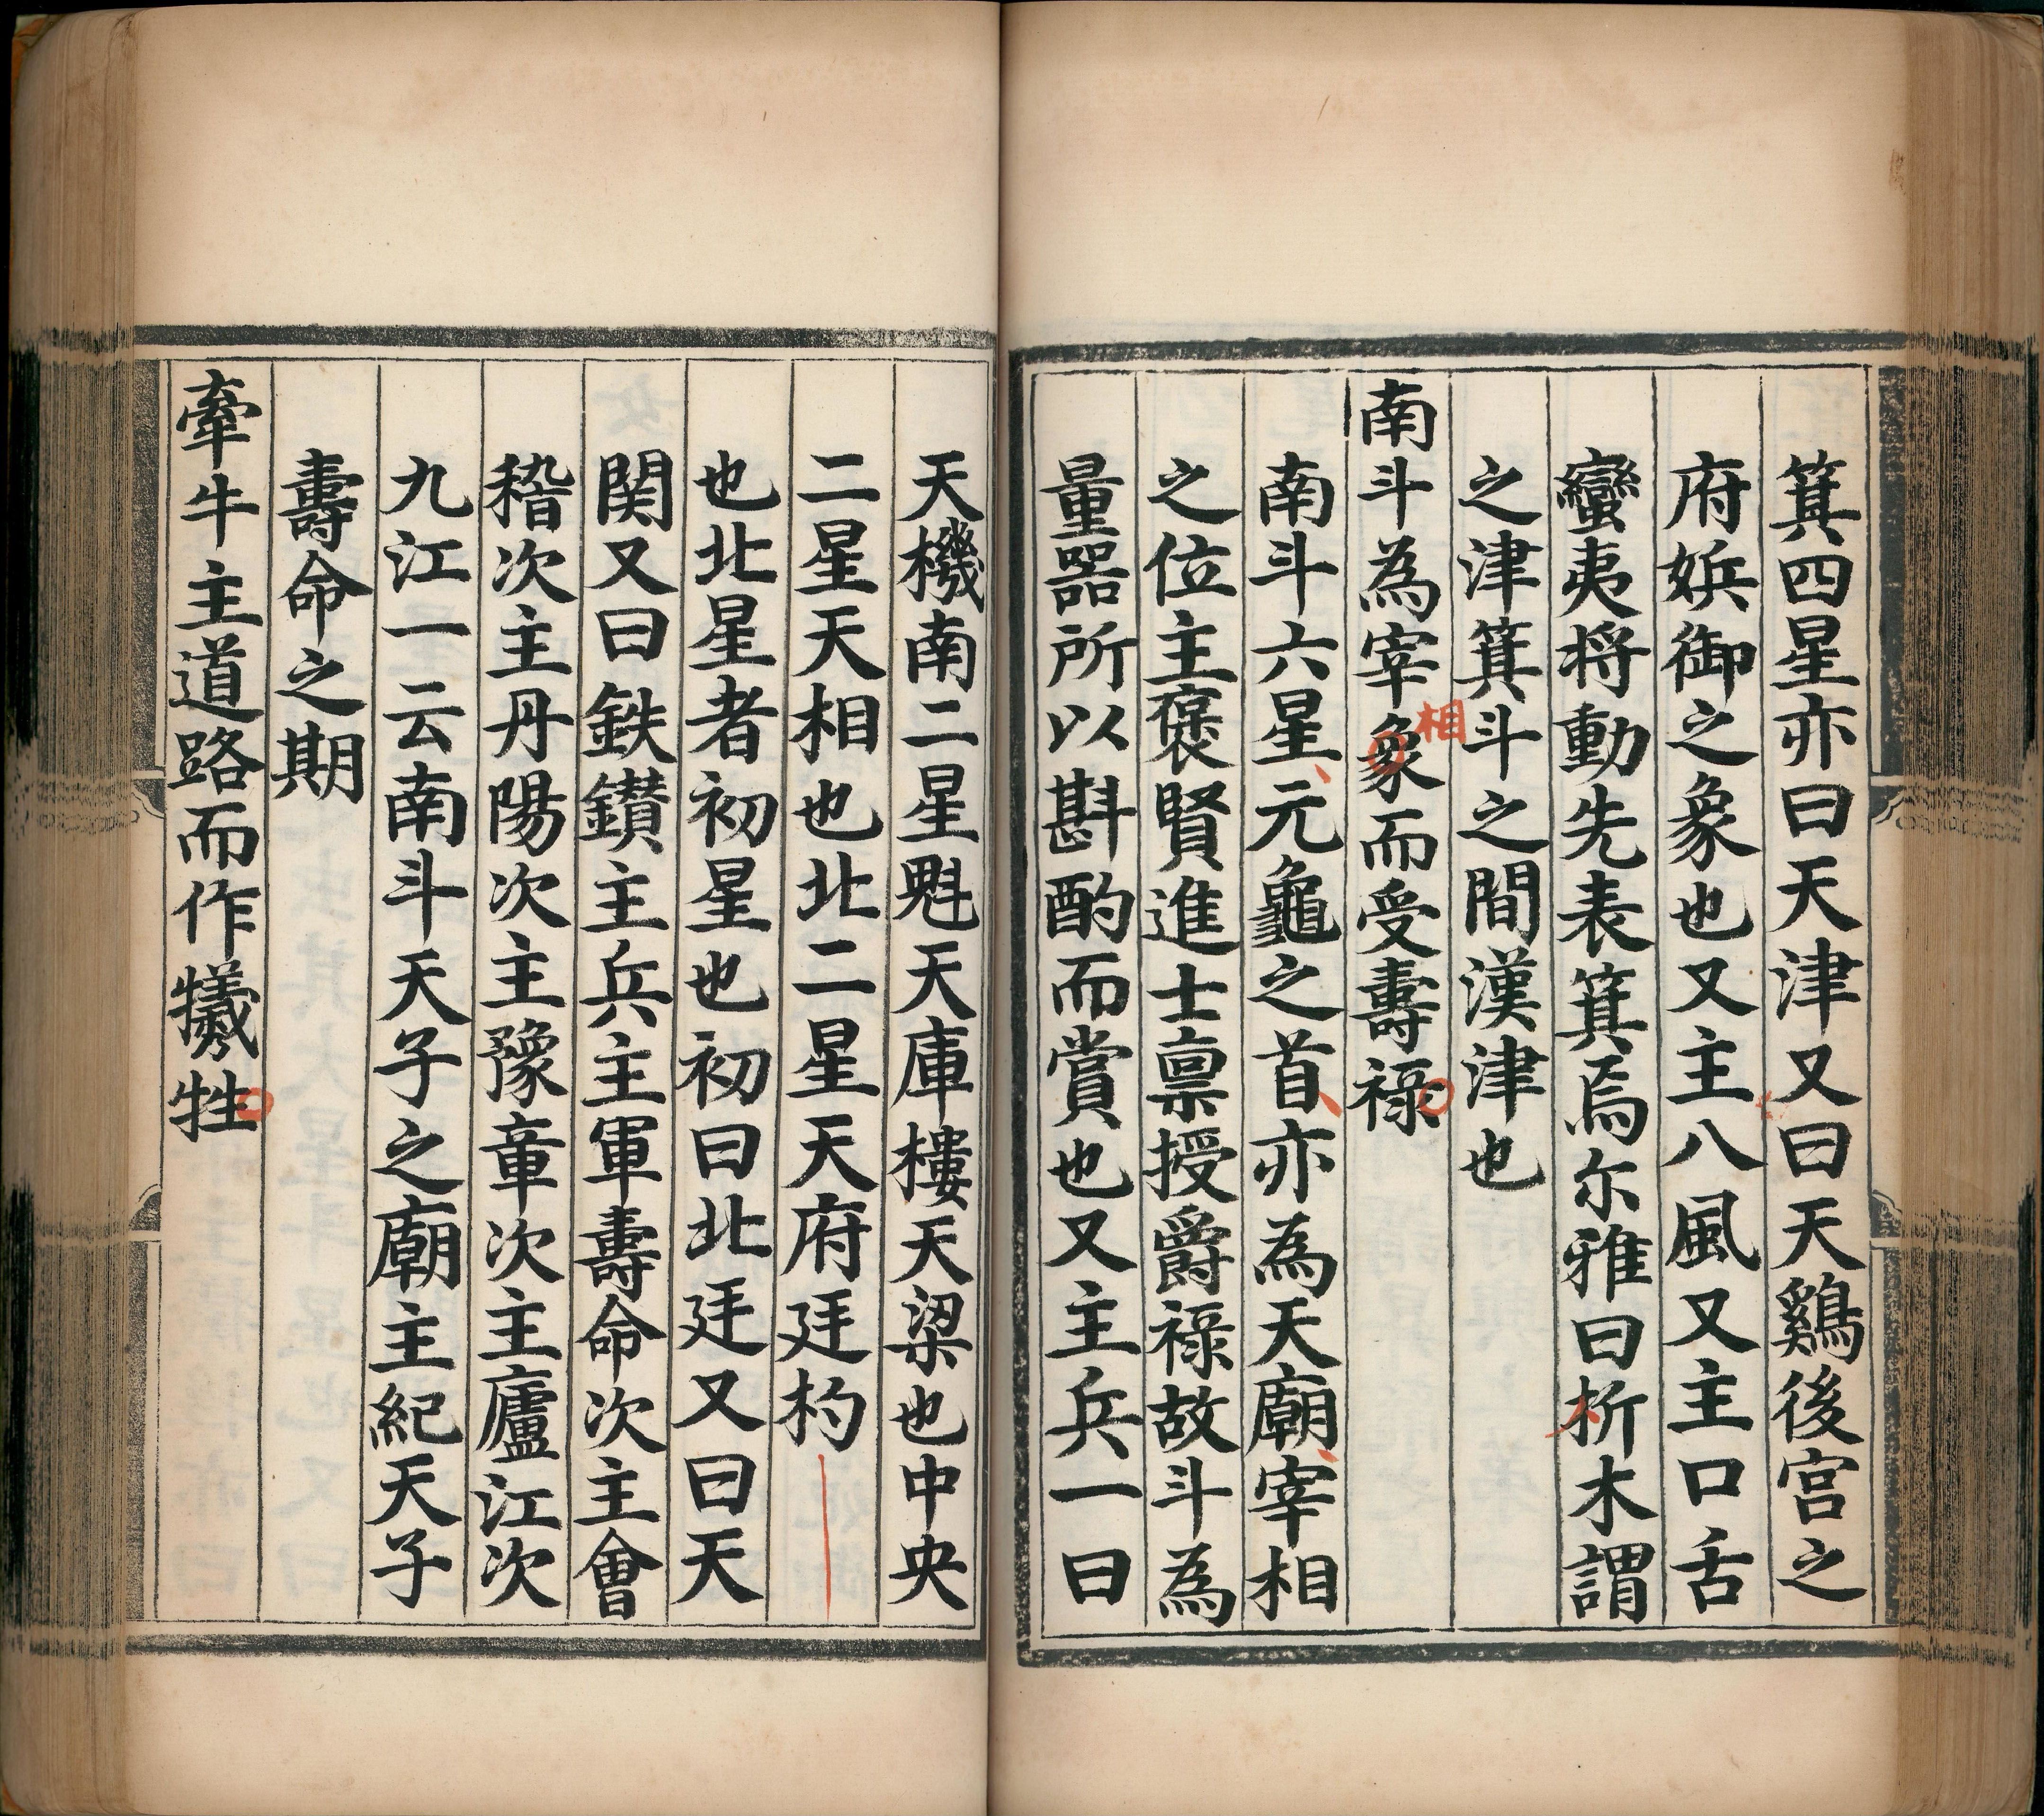 箕四星亦曰天津又曰天鷄後宫之
府嬪御之象也又主八風又主口舌
蠻夷将動先表箕焉尔雅曰析木謂
之津箕斗之間漢津也
南斗為宰象而受壽禄
相
南斗六星元龜之首亦為天廟宰相
之位主襃賢進士禀授爵禄故斗為
量器所以斟酌而賞也又主兵一曰
天機南二星魁天庫樓天梁也中央
二星天相也北二星天府廷杓
也北星者初星也初曰北廷又曰天
関又曰鈇鑕主兵主軍壽命次主會
稽次主丹陽次主豫章次主廬江次
九江一云南斗天子之廟主紀天子
壽命之期
牽牛主道路而作犠牲